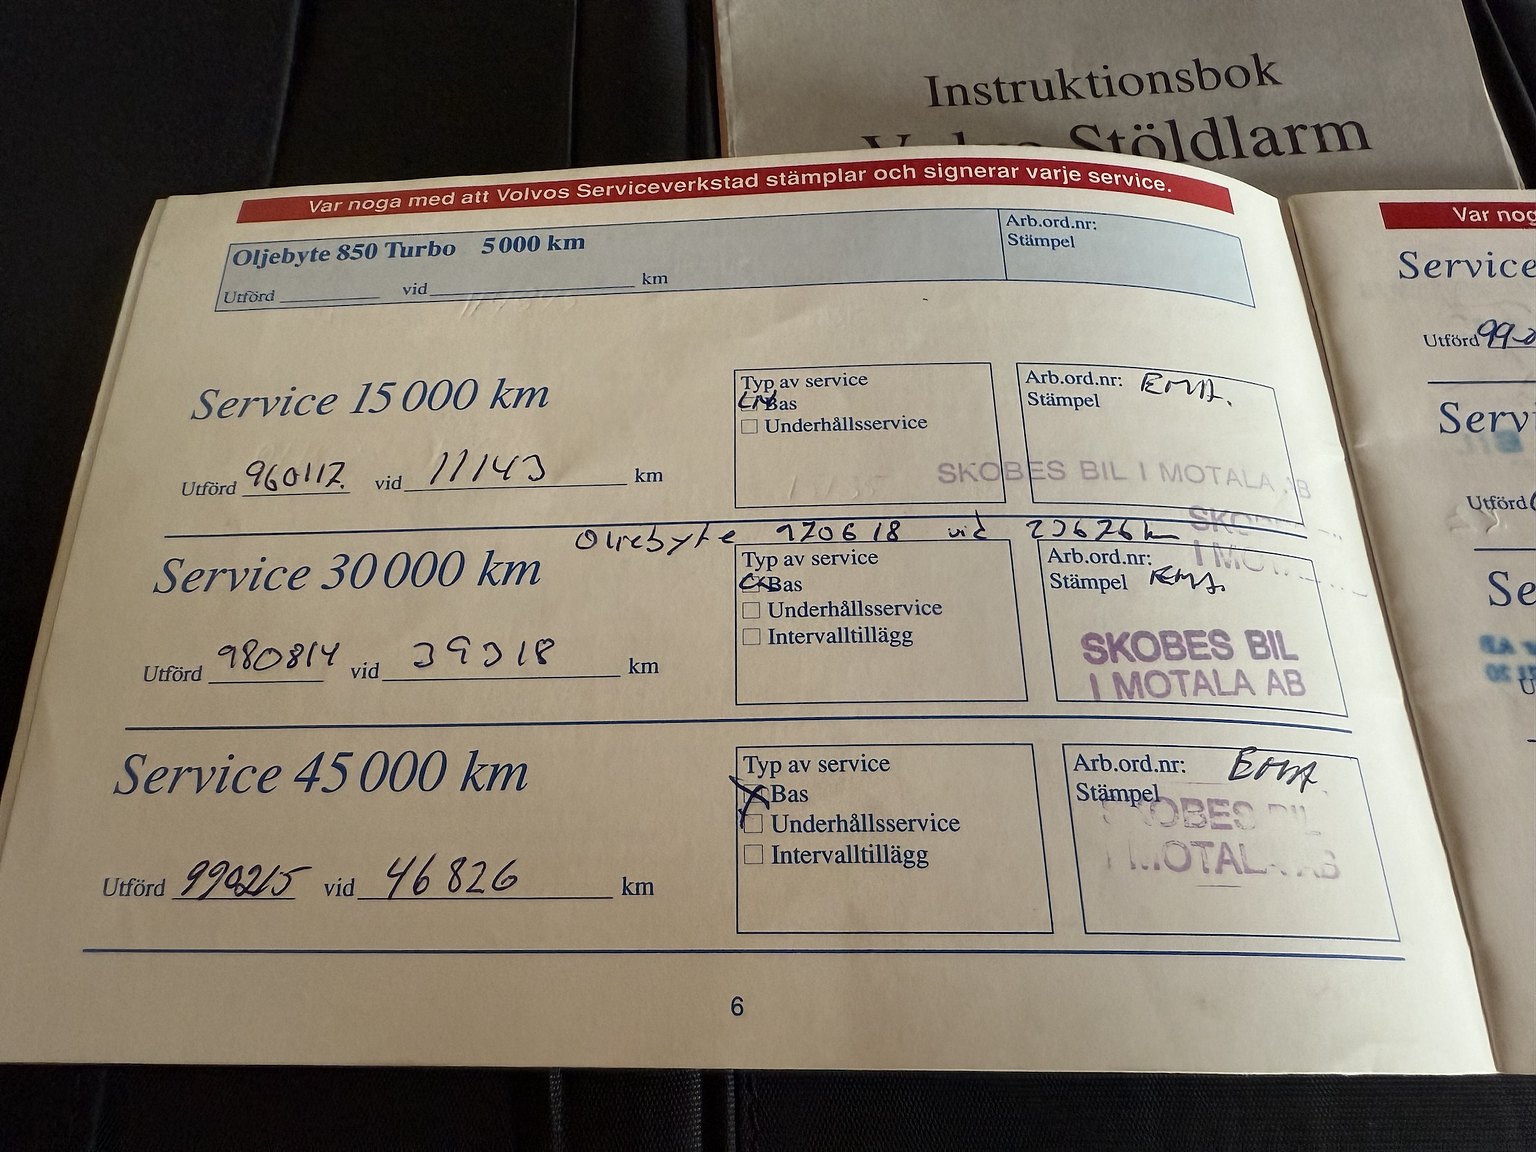 Instruktionsbok
Volvo Stöldlarm
Var noga med att Volvos Serviceverkstad stämplar och signerar varje service.
Oljebyte 850 Turbo 5 000 km
Arb.ord.nr:
Stämpel
Utförd vid km
Service 15 000 km
Typ av service
Bas
Underhållsservice
Arb.ord.nr:
Stämpel
SKOBES BIL I MOTALA AB
Utförd 960112 vid 11143 km
Oljebyte 970618 vid 23626 km
SKO
I MO
Service 30 000 km
Typ av service
Bas
Underhållsservice
Intervalltillägg
Arb.ord.nr:
Stämpel
SKOBES BIL
I MOTALA AB
Utförd 980814 vid 39318 km
Service 45 000 km
Typ av service
Bas
Underhållsservice
Intervalltillägg
Arb.ord.nr:
Stämpel
SKOBES BIL
I MOTALA AB
Utförd 990215 vid 46826 km
6
Var nog
Service
Utförd 99-0
Servi
Utförd
Se